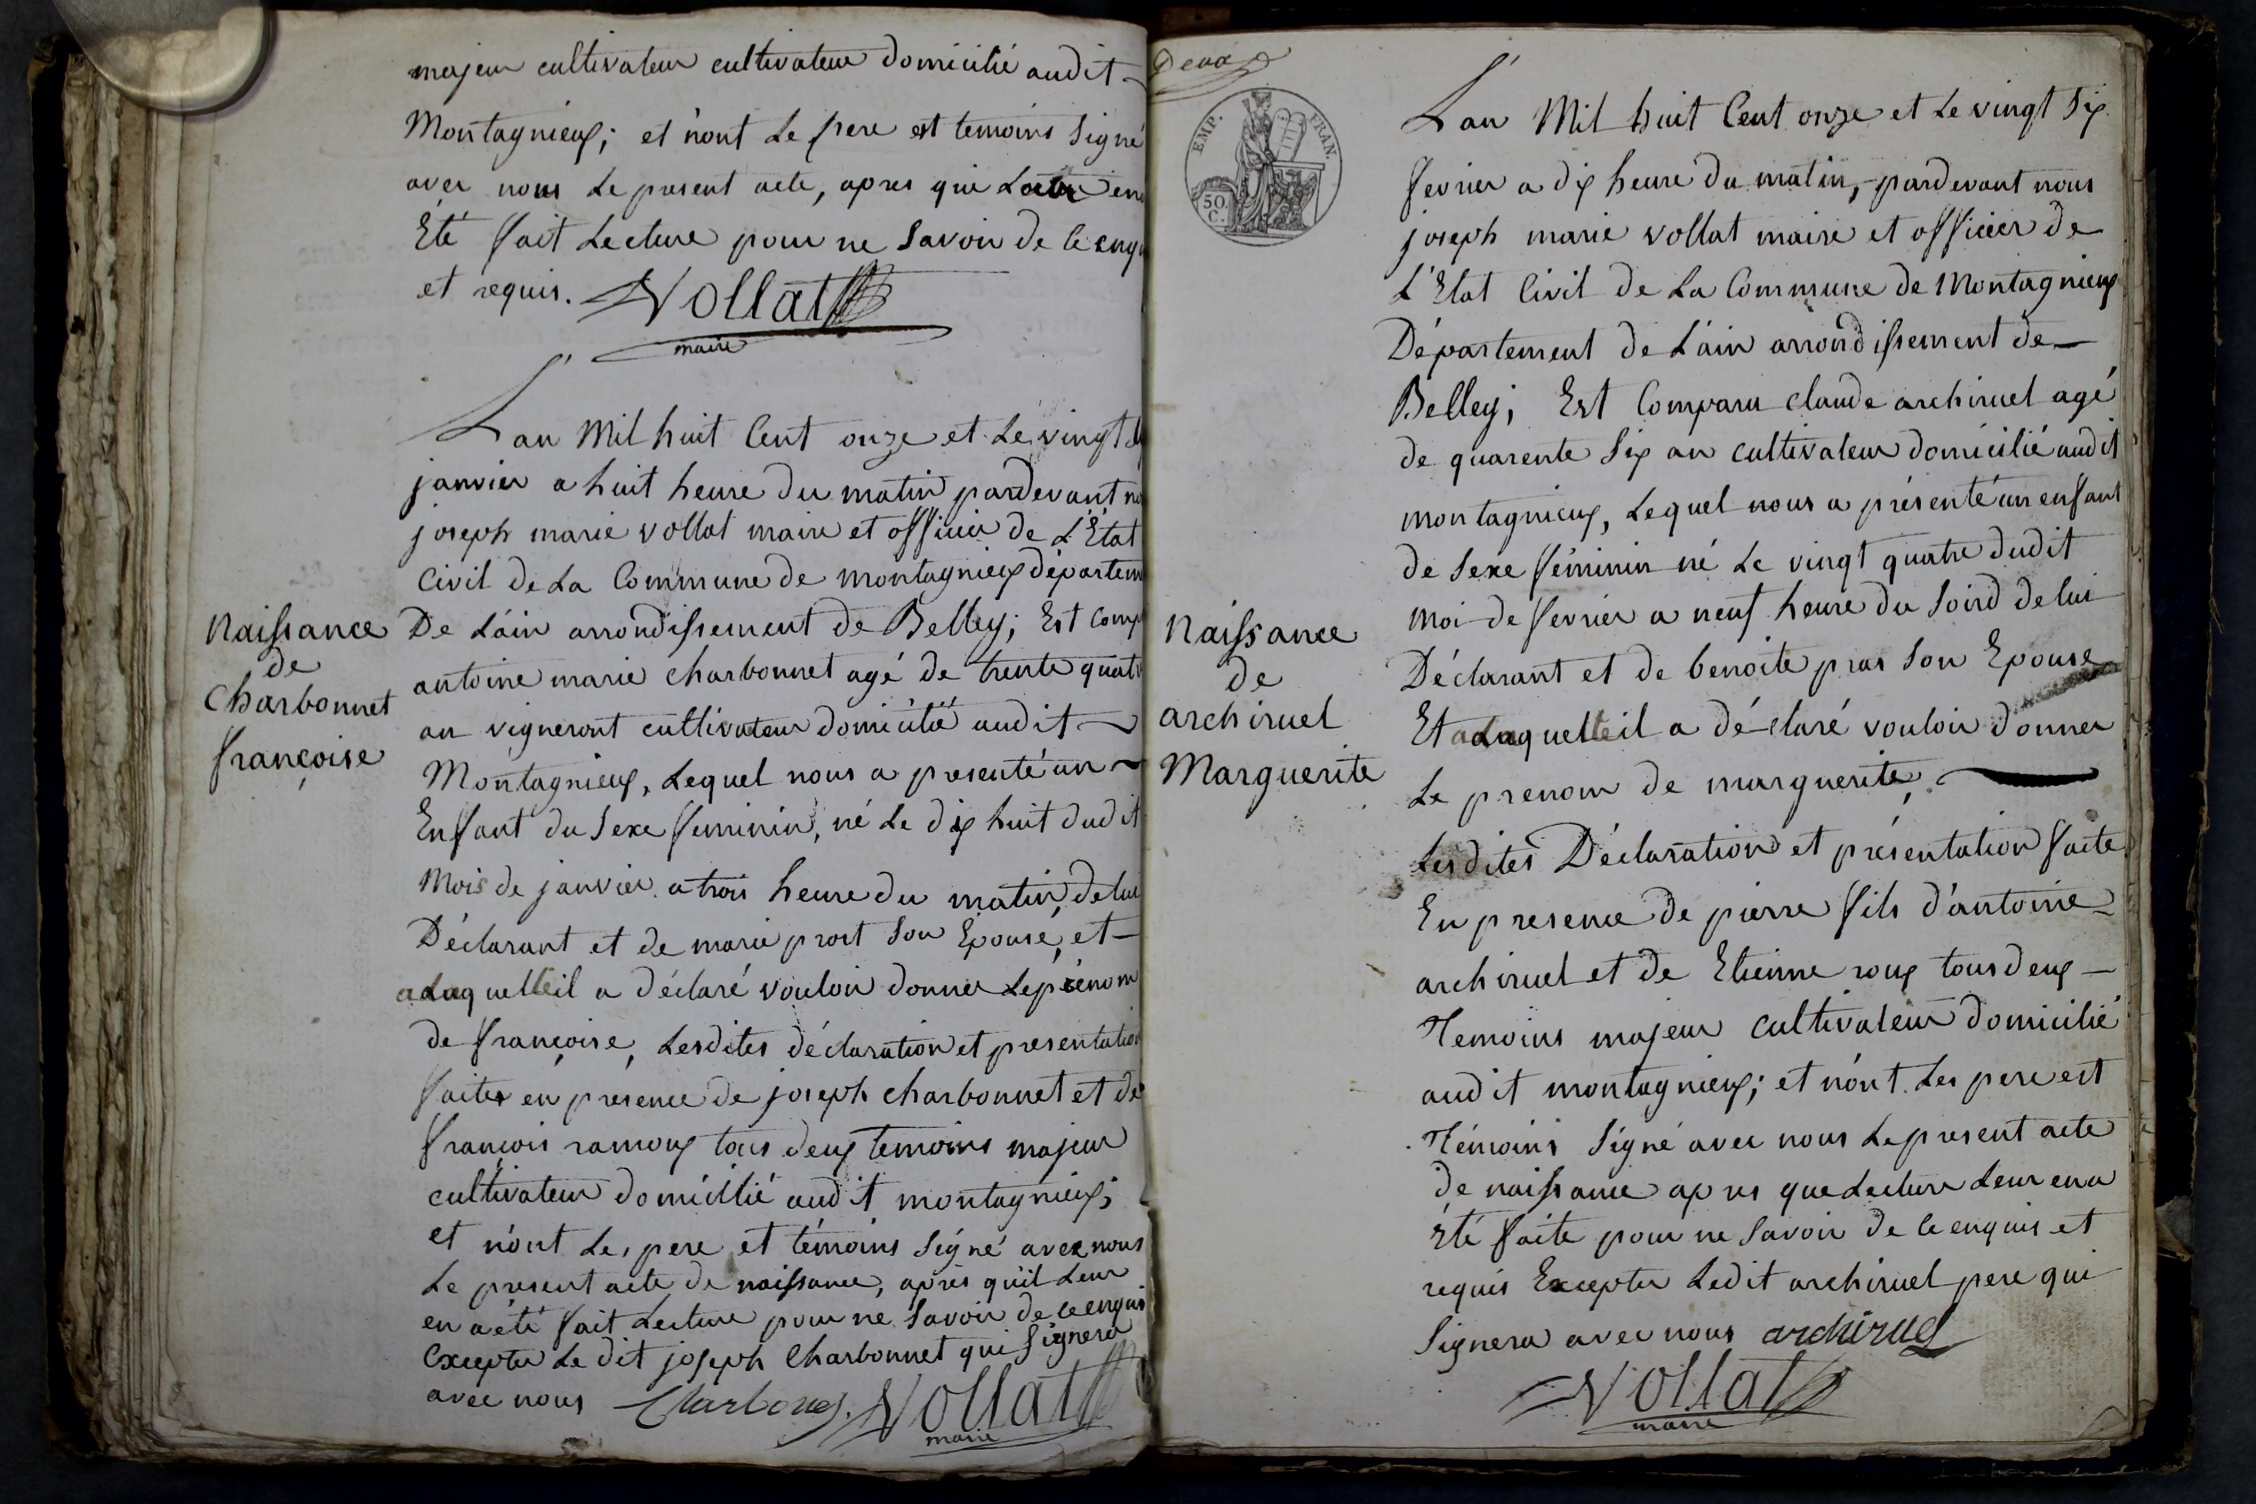 majeur cultivateur cultivateur domicilié audit
Montagnieux; et n'ont le pere est temoins signé
avec nous le present acte, apres que
Eté fait Lecture pour ne savoir de ce enqu
et requis. Vollat
maire
L'an Mil huit Cent onze et Le vingt
janvier a huit heure du matin pardevant no
joseph marie vollat maire et officier de L'État
Civil de La Commune de montagnieux départem
De L'ain arrondissement de Belley; Est Comp
antoine marie charbonnet agé de trente quatr
an vigneront cultivateur domicilié audit
Montagnieux, Lequel nous a presenté un
Enfant du sexe feminin, né Le dix huit dudit
Mois de janvier a trois heure du matin, de lui
Déclarant et de marie prost son Epouse, et
a Laquelle il a déclaré vouloir donner Le prénom
de françoise, Lesdites déclaration et presentation
faites en présence de joseph charbonnet et de
françois ramoux tous deux temoins majeur
cultivateur domicilié audit montagnieux;
et n'ont Le, pere et témoins signé avec nous
Le present acte de naissance, après qu'il Leur
en a été fait Lecture pour ne savoir de ce enquis
Excepter Le dit joseph Charbonnet qui signera
avec nous Vollat
maire
Naissance
de
Charbonnet
françoise
Deux
EMP. FRAN.
50.
C.
L'an Mil huit Cent onze et Le vingt six
fevrier a dix heure du matin, pardevant nous
joseph marie vollat maire et officier de
L'Etat Civil de La Commune de Montagnieux
Département de L'ain arrondissement de
Belley; Est Comparu claude archiruel agé
de quarente six an cultivateur domicilié audit
montagnieux, Lequel nous a présenté un enfant
de sexe féminin né Le vingt quatre dudit
moi de fevrier a neuf heure du soird de lui
Déclarant et de benoite pras son Epouse
Et a Laquelle il a déclaré vouloir donner
Le prenom de marguerite,
Lesdites Déclaration et présentation faite
En presence de pierre fils d'antoine
archiruel et de Etienne roux tous deux
Temoins majeur cultivateur domicilié
audit montagnieux; et n'ont Les pere est
Témoins signé avec nous Le present acte
de naissance apres que Lecture Leur en a
Été faite pour ne savoir de ce enquis et
requis Excepter Ledit archiruel pere qui
signera avec nous archiruel
Vollat
maire
Naissance
de
archiruel
Marguerite